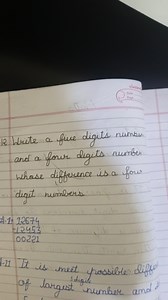 Write a five digits number
and a four digits number
whose difference is a four
digit numbers
12674
12453
00221
It is not possible
of largest digit number and